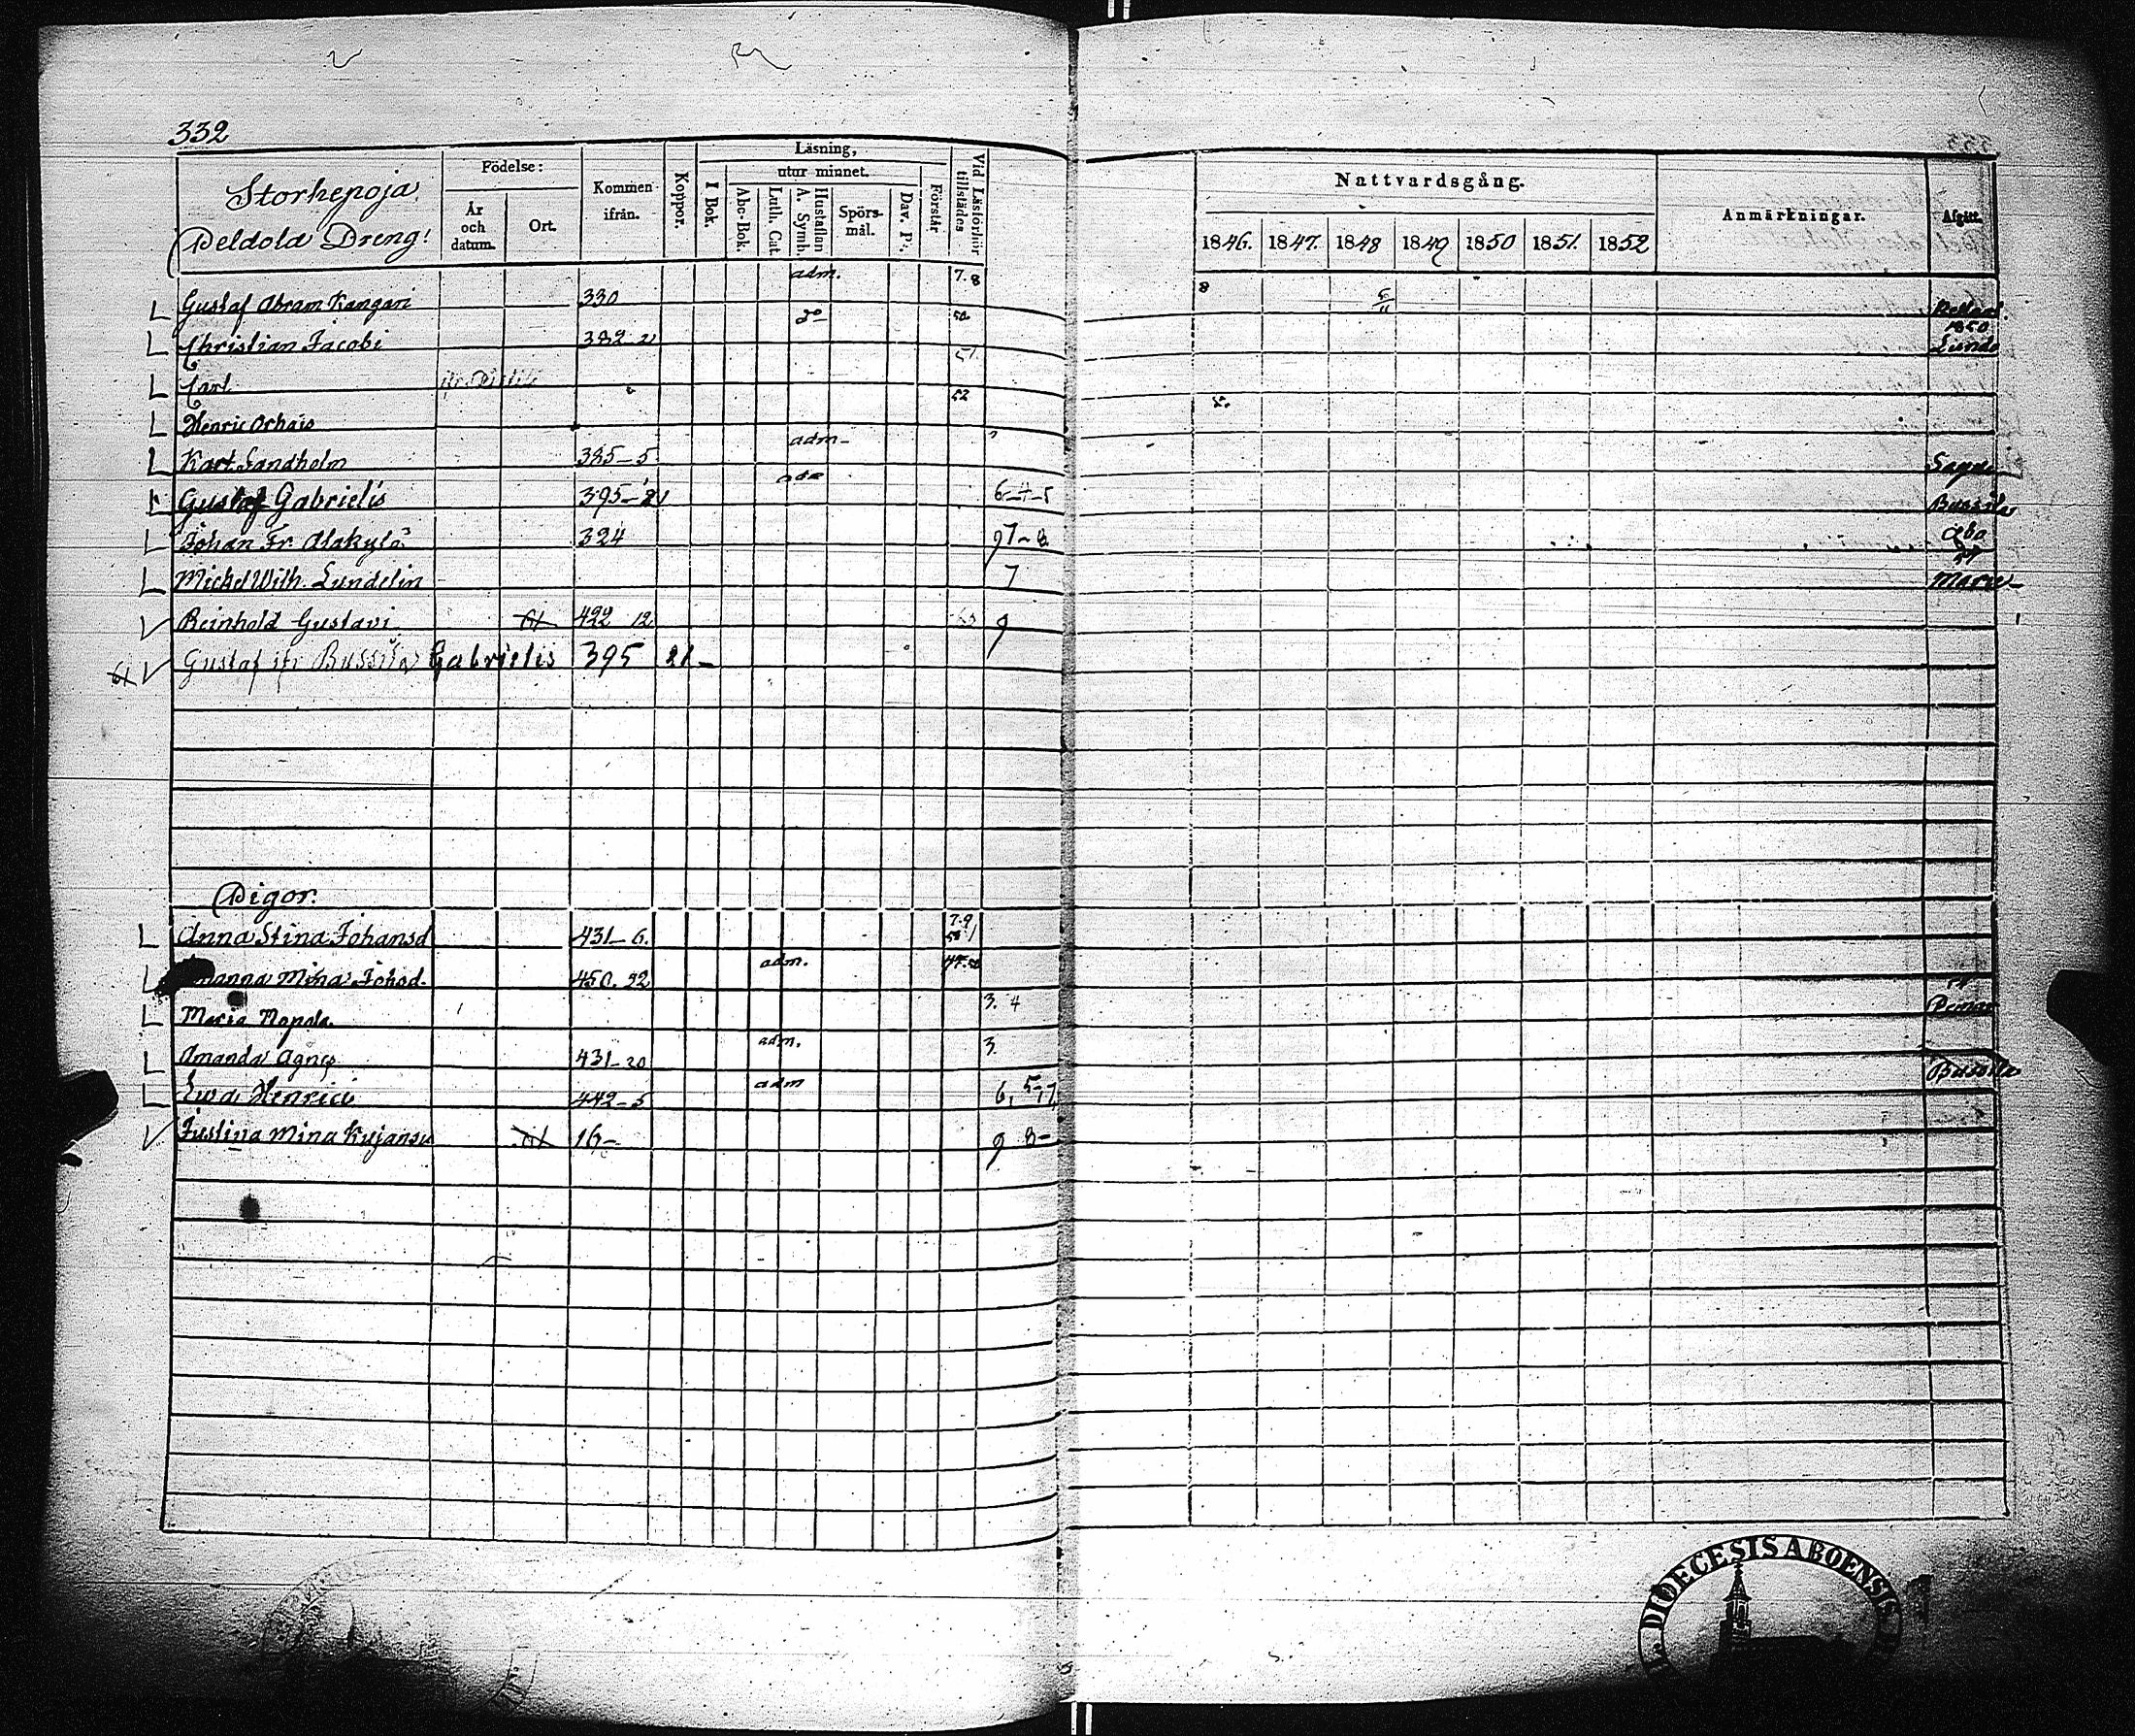 332
Storhepoja
Peldola Dreng!
Födelse:
År och datum.
Ort.
Kommen ifrån.
Koppor.
Läsning,
I Bok.
utur minnet.
Abc-Bok.
Luth. Cat.
A. Symb.
Hustaflan
Spörsmål.
Dav. Ps.
Förstår
Vid Läsförhör tillstädes
Nattvardsgång.
1846. 1847. 1848 1849 1850 1851. 1852
Anmärkningar.
Afgått.
Gustaf Abram Kangari 330 adm. 7.8 8
1850
Christian Jacobi 382 50 Lundo
Carl 51
Henric 52
Karl Sandholm 385-5 adm-
Gustaf Gabrielis 395-21 6-4-5 Bussila
Johan Fr. Alakylä 324 97-8 Åbo
Mickel Wilh. Lundelin 7 Marie
Reinhold Gustavi 61 422 12 9
61 Gustaf ifr Bussila Gabrielis 395 21-
Pigor.
Anna Stina Johansd 431-6. 7.9
Mina Johsd. 450. 22 adm.
Maria 3. 4
Amanda Agnes 431-20 adm. 3 Bussila
Ewa Henrici 442-5 adm 6, 5-,7
Justina Mina Kujansu 61 16- 9 8-
DIOECESIS ABOENSIS